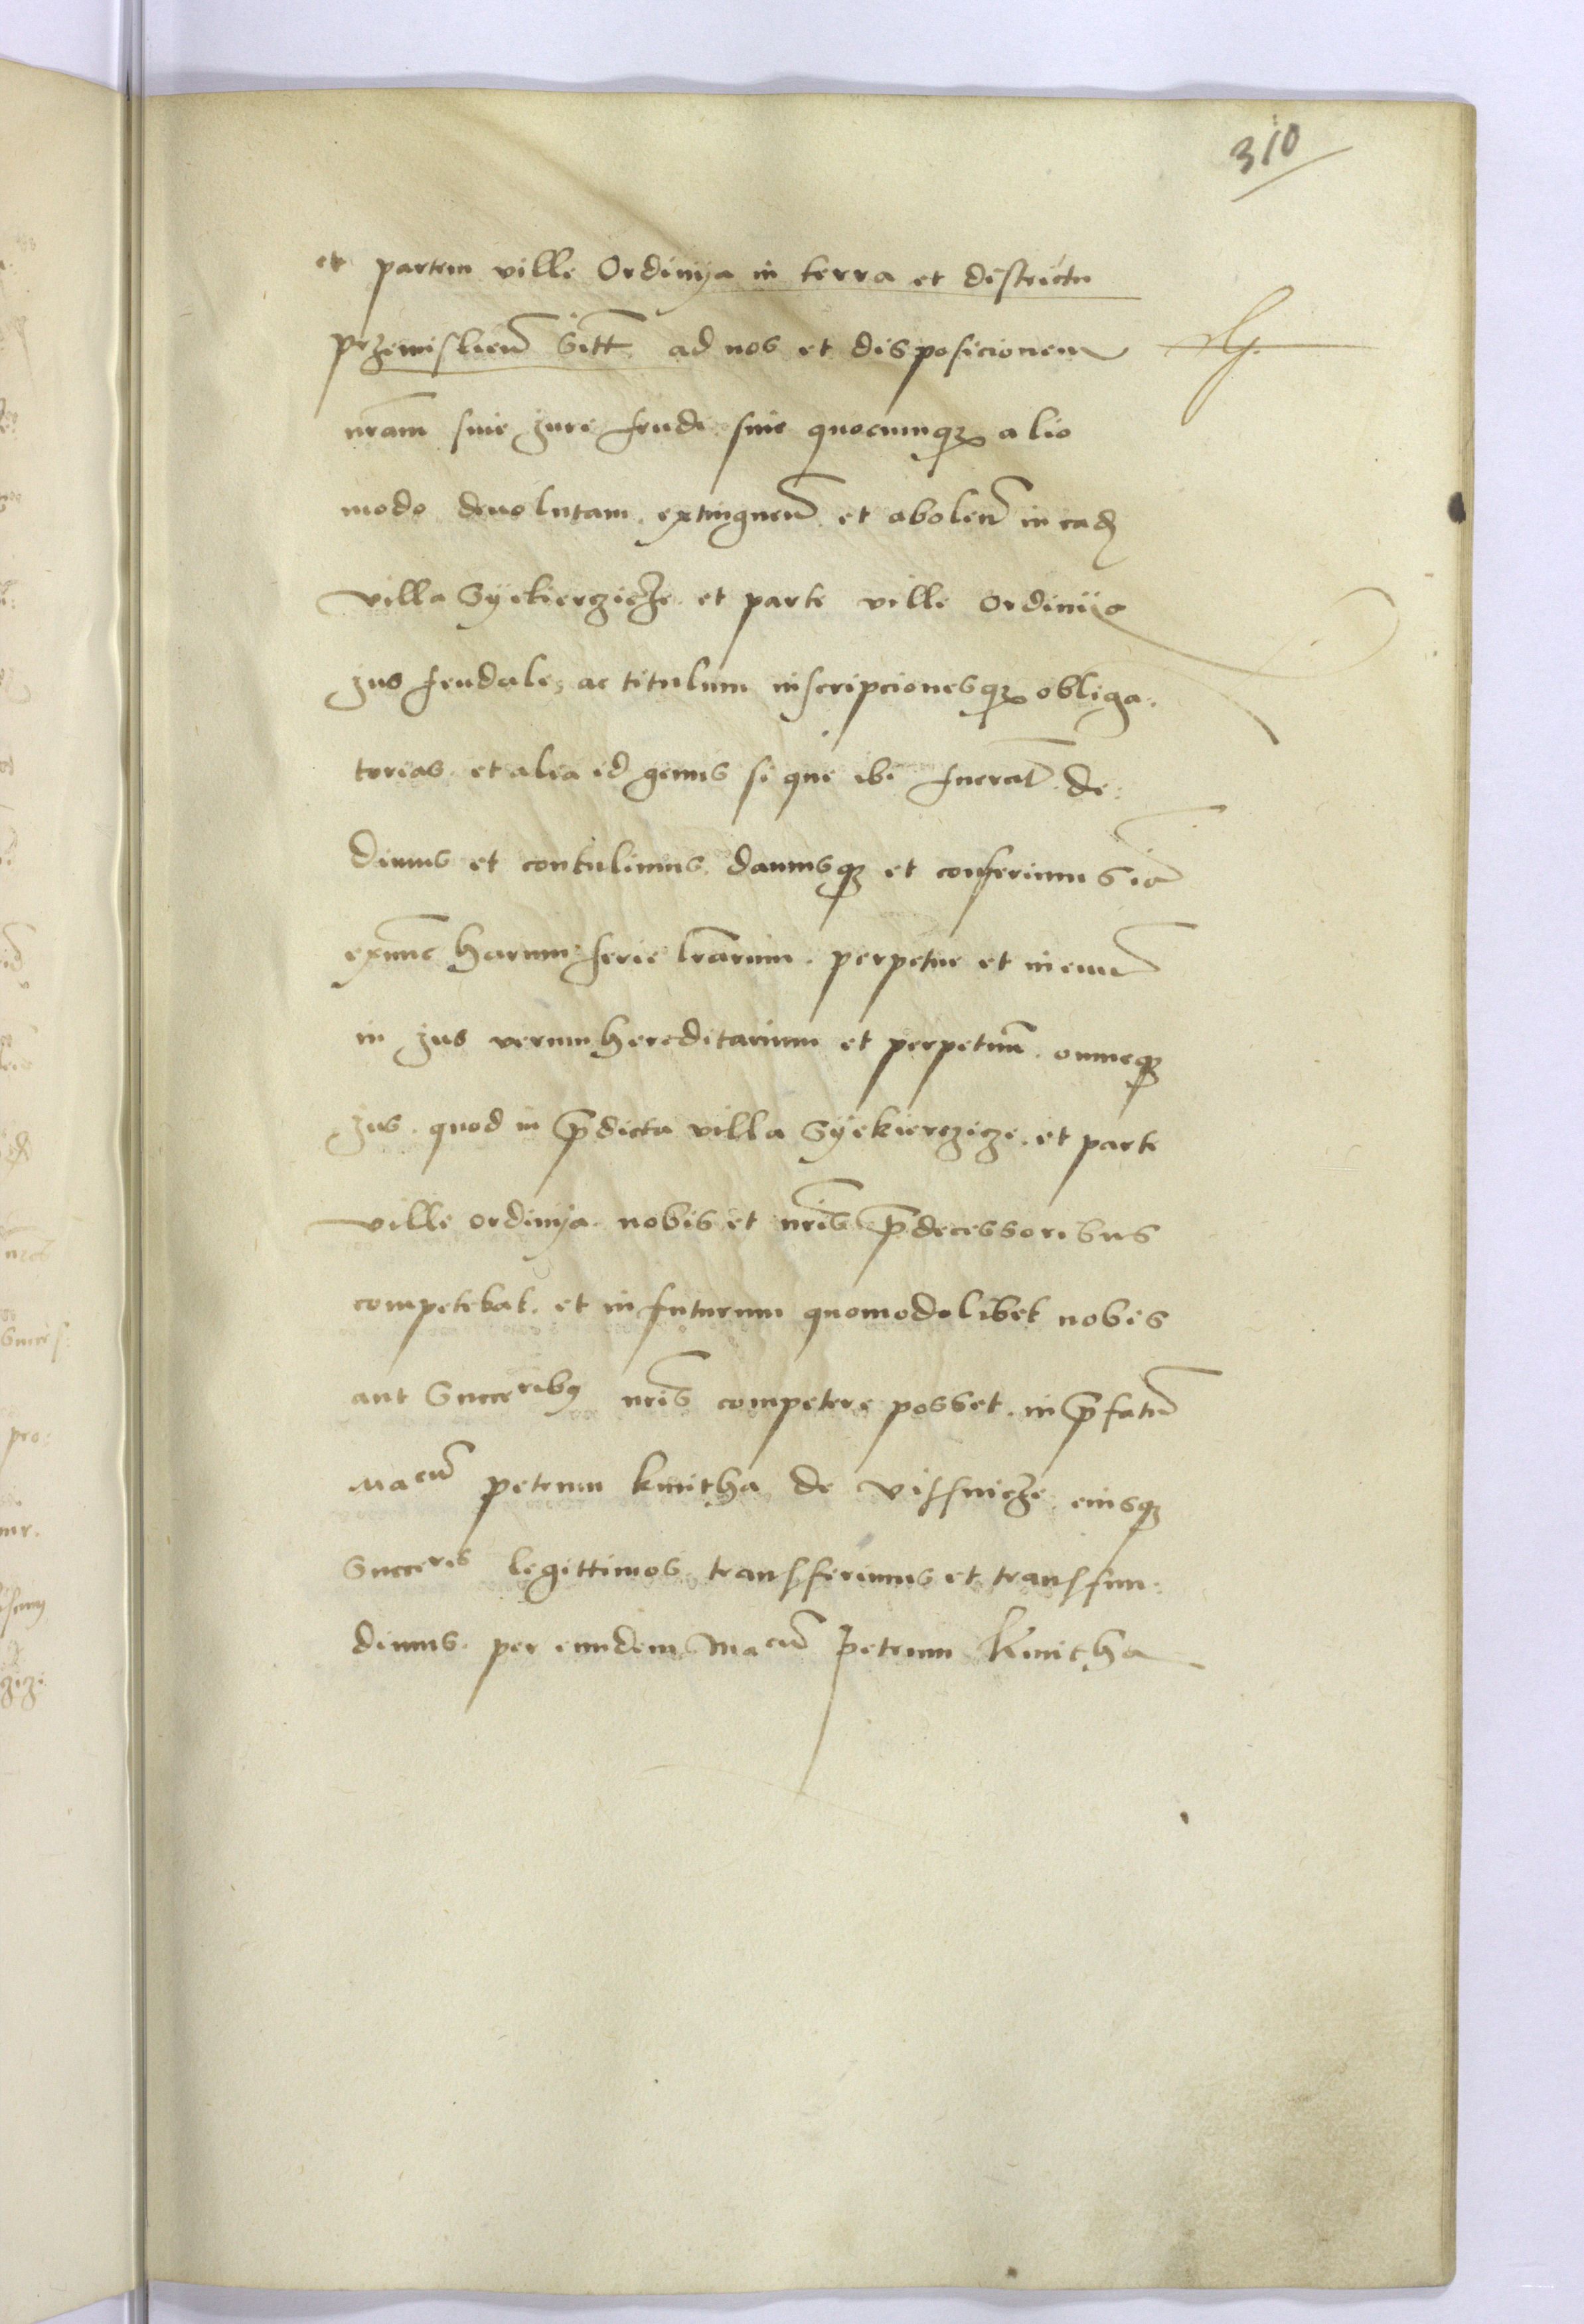 310
et partem ville Ordinya in terra et districtu
przemislień sitt. ad nos et disposicionem
nr̃am siue jure feudi siue quocumqꝫ alio
modo deuolutam. extinguen̄ et abolen̄ in eadꝫ
villa Syekierzicze et parte ville ordinya
jus feudale, ac titulum inscripcionesqꝫ obliga-
torias. et alia id genus si que ibi fuerāt. de-
dimus et contulimus. damusqꝫ et conferimus iā
exnunc harum serie lr̃arum. perpetue et in euū
in jus verum hereditarium et perpetuū. omneqꝫ
jus. quod in p̄dicta villa Syekierzicze. et parte
ville ordinya. nobis et nr̃is p̄decessoribus
competebat. et in futurum quomodolibet nobis
aut Succeribꝫ nr̃is competere posset. in p̄fatū
Macū petrum kmitha de visnicze eiusqꝫ
Succeres legittimos transferimus et transfun-
dimus. per eundem Macū petrum Kmitha